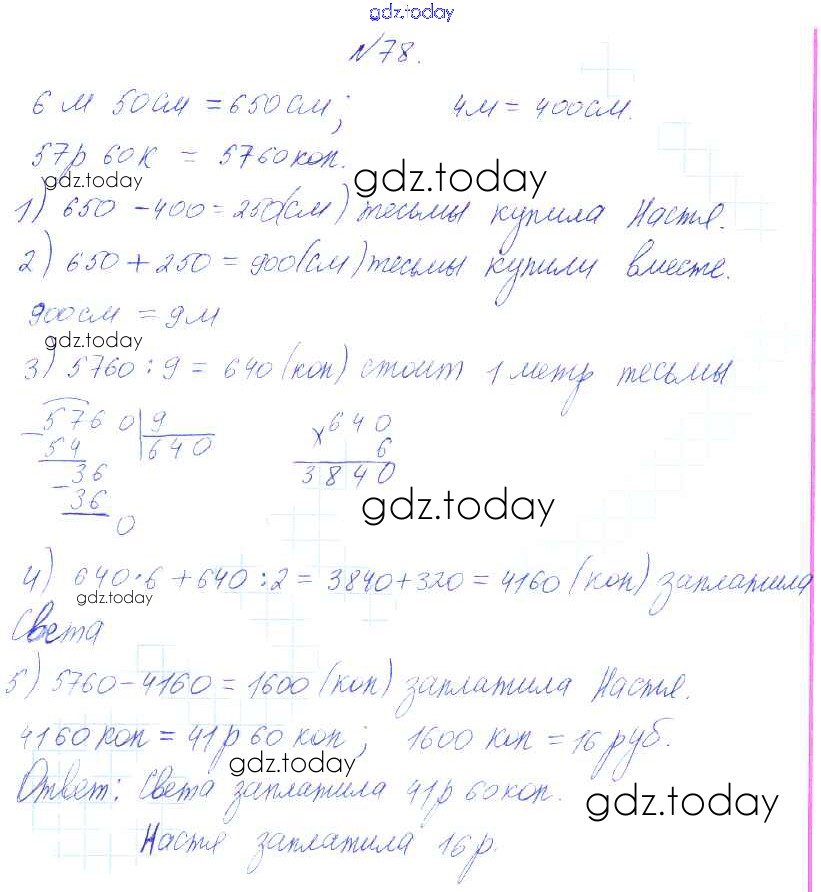 gdz.today
№78.
6 м 50см = 650см; 4м = 400см.
57р 60к = 5760коп.
gdz.today gdz.today
1) 650 - 400 = 250(см) тесьмы купила Настя.
2) 650 + 250 = 900(см) тесьмы купили вместе.
900см = 9м
gdz.today
3) 5760 : 9 = 640 (коп) стоит 1 метр тесьмы
- 5760 9 × 640
54 640 6
- 36 3840
36
0
gdz.today
4) 640·6 + 640 : 2 = 3840 + 320 = 4160 (коп) заплатила
gdz.today
Света
5) 5760 - 4160 = 1600 (коп) заплатила Настя.
4160 коп = 41р 60 коп; 1600 коп = 16 руб.
gdz.today
Ответ: Света заплатила 41р 60коп.
gdz.today
Настя заплатила 16р.